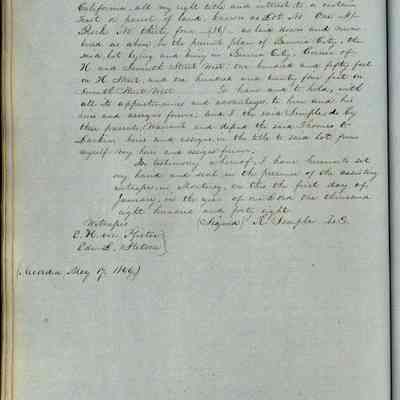 California, all my right title and interest to a certain
tract or parcel of land, known as Lot No One of
Block No thirty four (34) as laid down and num-
bered as above in the printed plan of Benicia City, the
said lot lying and being in Benicia City, Corner of
H. and Seventh Street West, one hundred and fifty feet
on H Street, and one hundred and twenty five feet on
Seventh Street West. To have and to hold, with
all its appurtenances and advantages, to him and his
heirs and assigns forever, and I the said Semple do by
these presents, Warrant and defend the said Thomas O.
Larkin, heirs and assigns, in the title to said lot from
myself my heirs and assigns forever.
In testimony whereof, I have hereunto set
my hand and seal in the presence of the assisting
witnesses, in Monterey, on this the first day of
January, in the year of our Lord One thousand
eight hundred and forty eight
Witnesses (Signed) R. Semple L.S.
E. H. von Pfister
Edw. L. Stetson
(Recorded May 17, 1849)